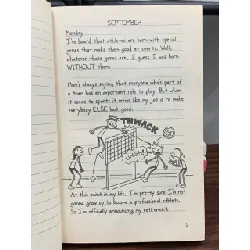 SEPTEMBER
Monday
I've heard that athletes are born with special
genes that make them good at sports. Well,
whatever those genes are, I guess I was born
WITHOUT them.
Mom's always saying that everyone who's part of
a team has an important role to play. But when
it comes to sports it seems like my job is to make
everybody ELSE look good.
THWACK
At this point in my life, I'm pretty sure I'm not
gonna grow up to become a professional athlete.
So I'm officially announcing my retirement.
1